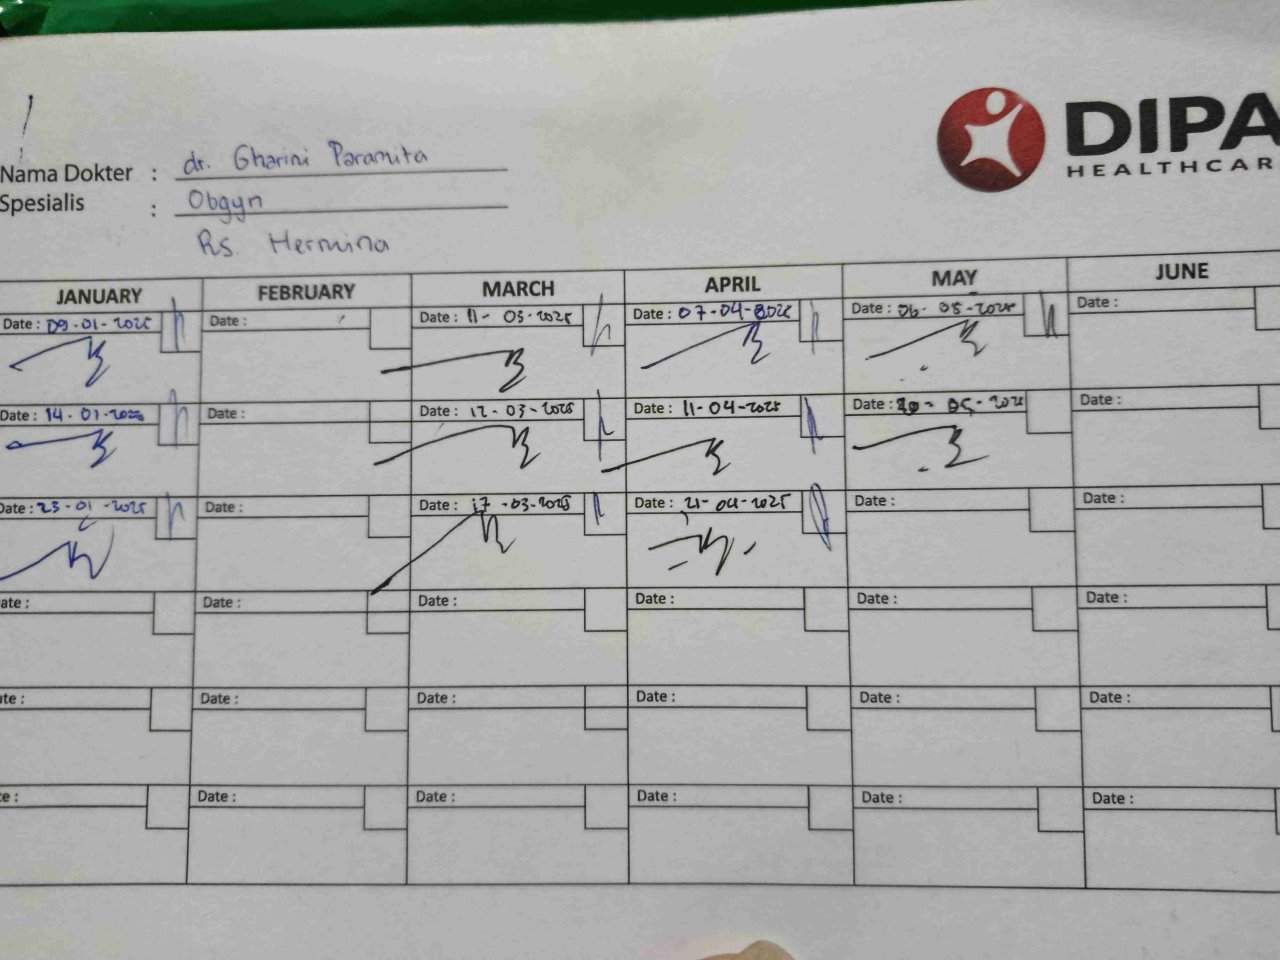 DIPA
HEALTHCAR
Nama Dokter : dr. Gharini Paramita
Spesialis : Obgyn
Rs. Hermina
JANUARY FEBRUARY MARCH APRIL MAY JUNE
Date : 09-01-2025 Date : Date : 11-03-2025 Date : 07-04-2025 Date : 06-05-2025 Date :
Date : 14-01-2025 Date : Date : 12-03-2025 Date : 11-04-2025 Date : 20-05-2025 Date :
Date : 23-01-2025 Date : Date : 17-03-2025 Date : 21-04-2025 Date : Date :
ate : Date : Date : Date : Date : Date :
te : Date : Date : Date : Date : Date :
e : Date : Date : Date : Date : Date :